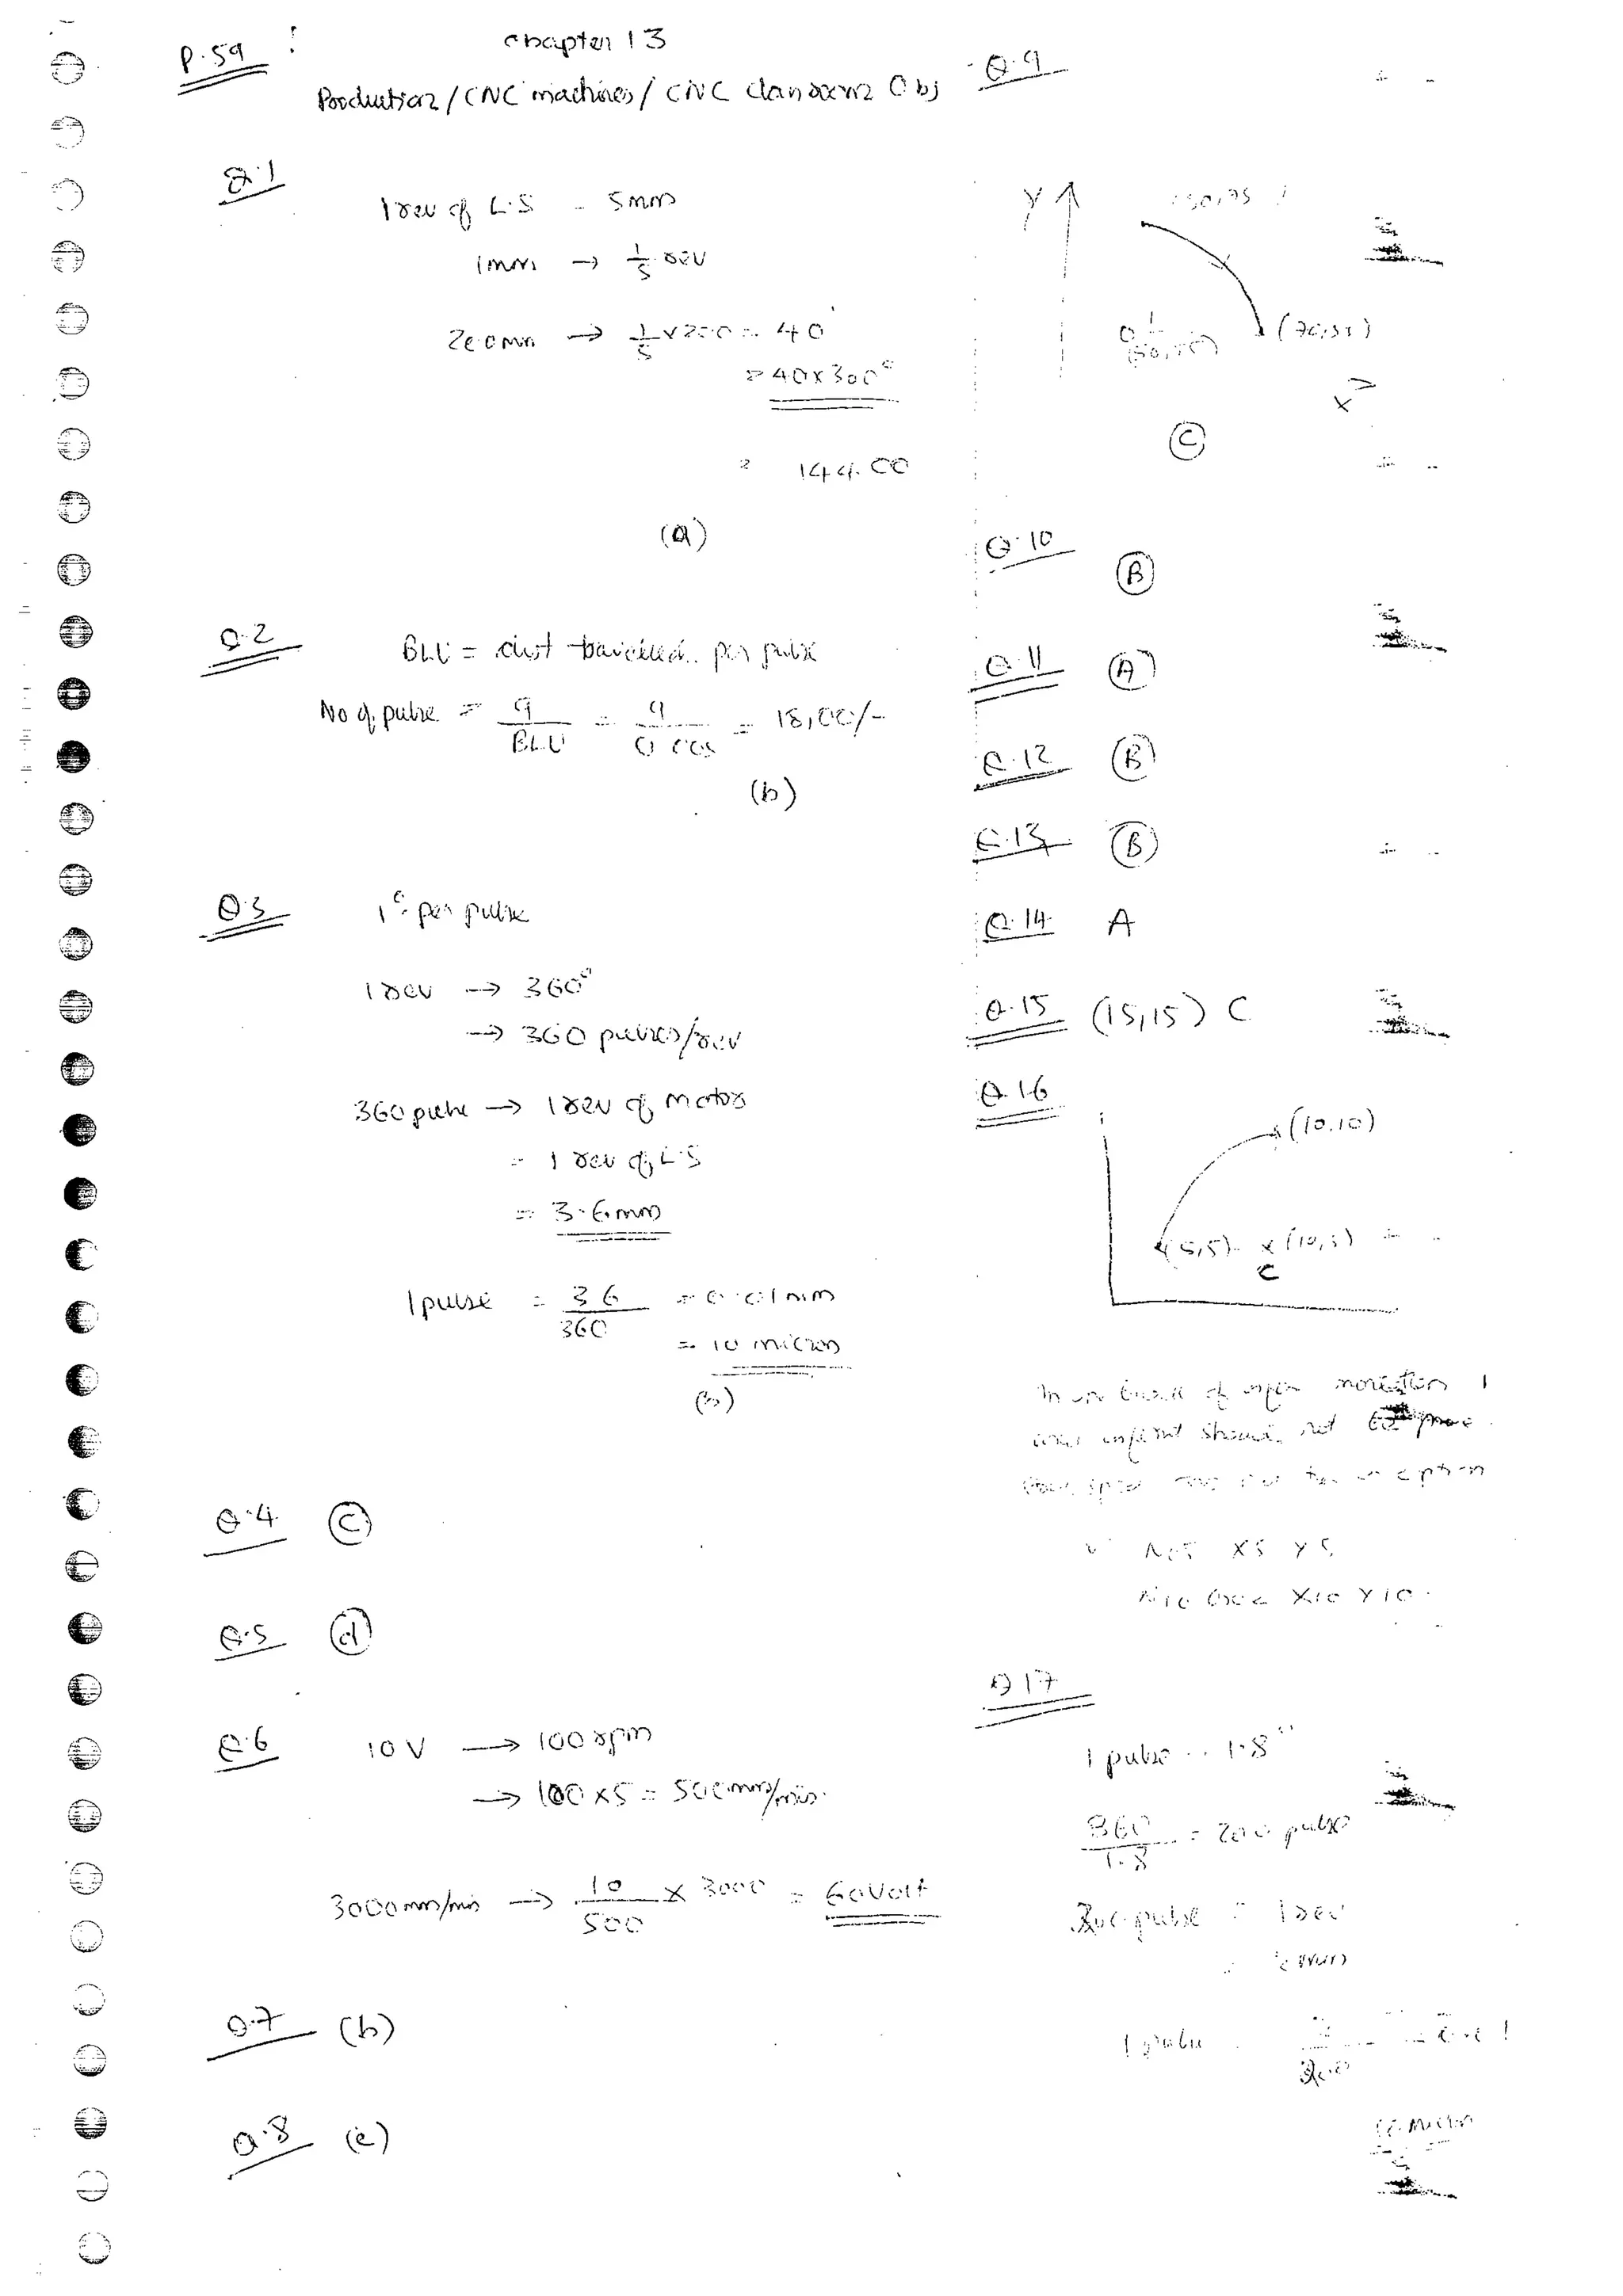 P.59
Chapter 13
Production / CNC machines / CNC classroom Obj
Q.1
1 rev of L.S = 5mm
1mm → 1/5 rev
200mm → 1/5 × 200 = 40
= 40 × 360°
= 14400
(a)
Q.2
BLU = dist travelled per pulse
No of pulse = 9/BLU = 9/0.005 = 1800/-
(b)
Q.3
1° per pulse
1 rev → 360°
→ 360 pulses/rev
360 pulse → 1 rev of motor
= 1 rev of L.S
= 3.6mm
1 pulse = 3.6/360 = 0.01mm
= 10 micron
(b)
Q.4 (C)
Q.5 (d)
Q.6
10V → 100 rpm
→ 100 × 5 = 500mm/min
3000mm/min → 10/500 × 3000 = 60 Volt
Q.7 (b)
Q.8 (c)
Q.9
Y
X
(C)
Q.10 (B)
Q.11 (A)
Q.12 (B)
Q.13 (B)
Q.14 A
Q.15 (15,15) C
Q.16
(10,10)
(5,5) × (10,5)
C
should not
option
N05 X5 Y5
N10 G02 X10 Y10
Q.17
1 pulse 1.8°
360/1.8 = 200 pulse
200 pulse = 1 rev
1 pulse
micron